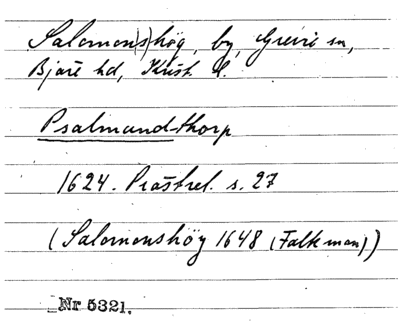 Salomon(s)hög, by, Grevie sn,
Bjäre hd, Krist. l.
Psalmundthorp
1624. Prästrel. s. 27
(Salomonshög 1648 (Falkman))
Nr 5321.